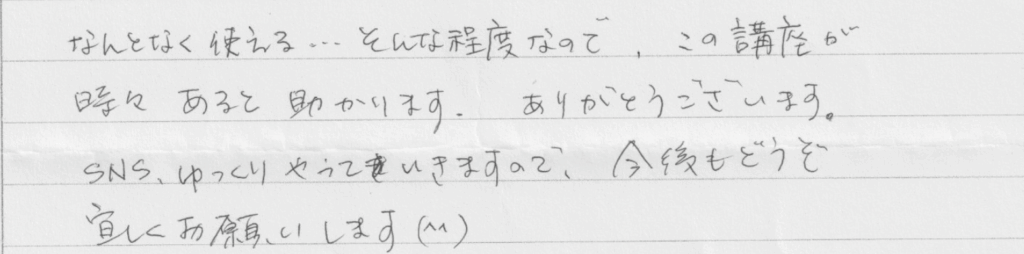 なんとなく使える…そんな程度なので、この講座が
時々あると助かります. ありがとうございます。
SNS、ゆっくりやっていきますので、今後もどうぞ
宜しくお願いします(^^)